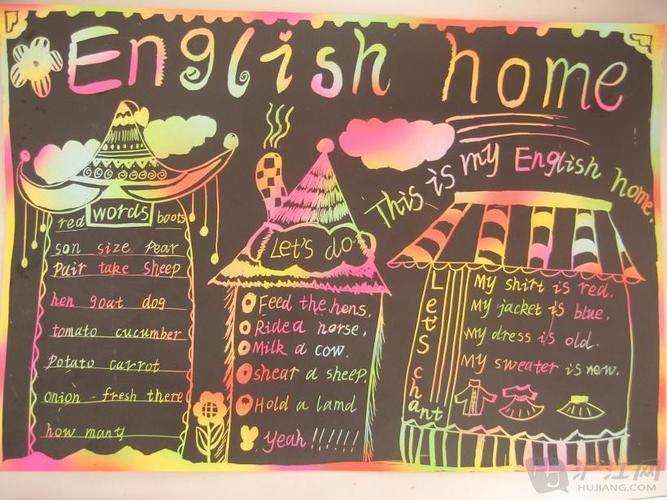 English home
This is my English home.
words
red boots
son size pear
pair take sheep
hen goat dog
tomato cucumber
potato carrot
onion fresh there
how many
Let's do
Feed the hens.
Ride a horse.
Milk a cow.
shear a sheep.
Hold a lamd
Yeah!!!!!!
Let's chant
My shirt is red.
My jacket is blue.
My dress is old.
My sweater is now.
沪江网
HUJIANG.COM